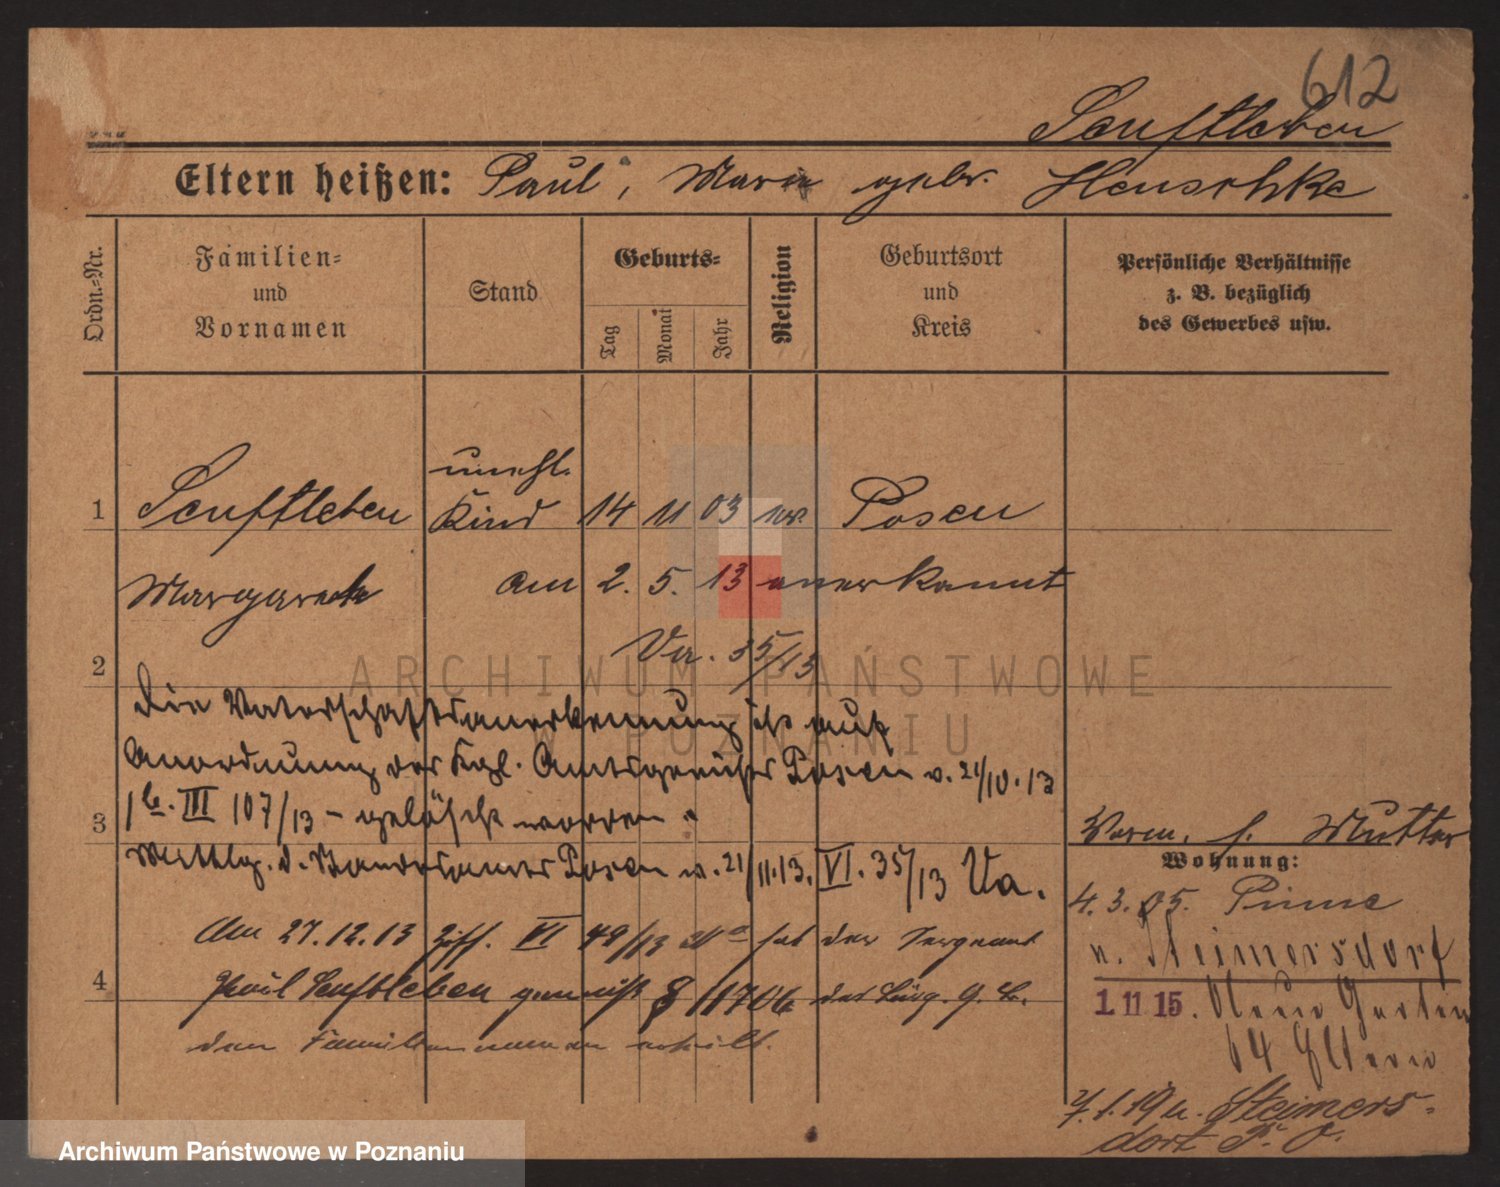 612
Senftleben
Eltern heißen: Paul, Marie gebr. Henschke
Ordn.-Nr.
Familien-
und
Vornamen
Stand
Geburts-
Tag
Monat
Jahr
Religion
Geburtsort
und
Kreis
Persönliche Verhältnisse
z. B. bezüglich
des Gewerbes usw.
1 Senftleben unehl. Kind 14 11 03 ev. Posen
Margarete am 2. 5. 13 anerkannt
2 Va. 35/13
ARCHIWUM PAŃSTWOWE
W POZNANIU
Die Vaterschaftsanerkennung ist auf
Anordnung des Kgl. Amtsgerichts Posen v. 21/10.13
3 1b. III 107/13 - gelöscht worden.
Mittlg. d. Standesamtes Posen v. 21/11.13. VI. 35/13 Va.
Am 27.12.13 VI 49/13 hat der Sergeant
4 Paul Senftleben gemäß § 1706 des Bürg. G. B.
den Familiennamen erteilt.
Vorm. s. Mutter
Wohnung:
4.3.05. Pinne
n. Steimersdorf
1.11.15. Neue Garten
64 Eltern
7.1.19 n. Steimers-
dorf P. O.
Archiwum Państwowe w Poznaniu